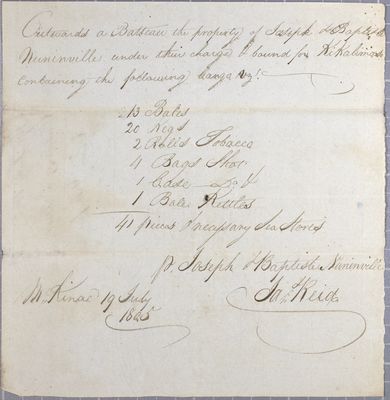 Outwards a Batteau the property of Joseph & Baptiste
Nuninville under their charge & bound for Kikalimazo
containing the following
13 Bales
20 Kegs
2 Rolls Tobacco
4 Bags Shot
1 Case
1 Bale Kettles
41 pieces & necessary Sea Stores
pr. Joseph & Baptiste Nuninville
Jas. Reid
McKinac 19 July
1805